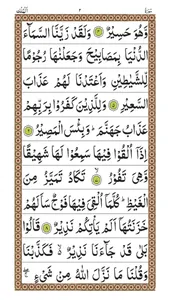 وَّهُوَ حَسِيْرٌ ۝ وَلَقَدْ زَيَّنَّا السَّمَآءَ
الدُّنْيَا بِمَصَابِيْحَ وَجَعَلْنٰهَا رُجُوْمًا
لِّلشَّيٰطِيْنِ وَاَعْتَدْنَا لَهُمْ عَذَابَ
السَّعِيْرِ ۝ وَلِلَّذِيْنَ كَفَرُوْا بِرَبِّهِمْ
عَذَابُ جَهَنَّمَ ؕ وَبِئْسَ الْمَصِيْرُ ۝
اِذَاۤ اُلْقُوْا فِيْهَا سَمِعُوْا لَهَا شَهِيْقًا
وَّهِىَ تَفُوْرُ ۝ تَكَادُ تَمَيَّزُ مِنَ
الْغَيْظِ ؕ كُلَّمَاۤ اُلْقِىَ فِيْهَا فَوْجٌ سَاَلَهُمْ
خَزَنَتُهَاۤ اَلَمْ يَاْتِكُمْ نَذِيْرٌ ۝ قَالُوْا
بَلٰى قَدْ جَآءَنَا نَذِيْرٌ ۙ فَكَذَّبْنَا
وَقُلْنَا مَا نَزَّلَ اللّٰهُ مِنْ شَىْءٍ ۖ